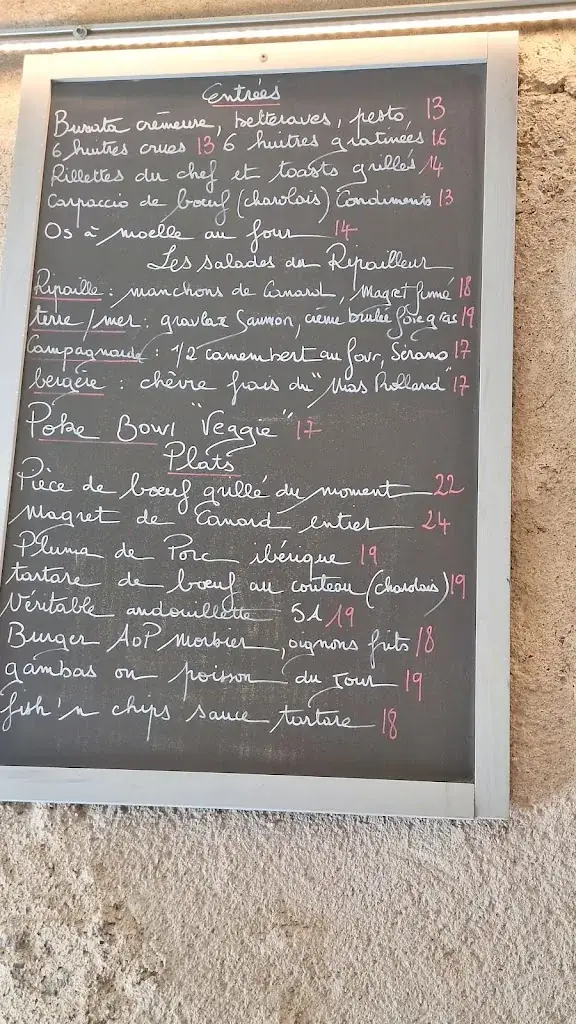 Entrées
Burrata crémeuse, betteraves, pesto, 13
6 huitres crues 13 6 huitres gratinées 16
Rillettes du chef et toasts grillés 14
Carpaccio de bœuf (charolais) Condiments 13
Os à moelle au four 14
Les salades du Ripailleur
Ripaille : manchons de Canard, Magret fumé 18
terre/mer : gravlax Saumon, crème brulée foie gras 19
Campagnarde : 1/2 camembert au four, Serano 17
bergère : chèvre frais du "Mas Rolland" 17
Poke Bowl "Veggie" 17
Plats
Pièce de bœuf grillé du moment 22
Magret de Canard entier 24
Pluma de Porc ibérique 19
tartare de bœuf au couteau (charolais) 19
Véritable andouillette 5A 19
Burger AoP Morbier, oignons frits 18
gambas ou poisson du jour 19
fish'n chips sauce tartare 18